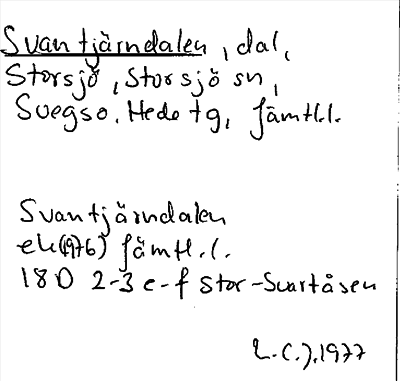 Svantjärndalen, dal,
Storsjö, Storsjö sn,
Svegs o. Hede tg, Jämtl.l.
Svantjärndalen
ek (1976) Jämtl.l.
18D 2-3 e-f Stor-Svartåsen
L.C.J. 1977